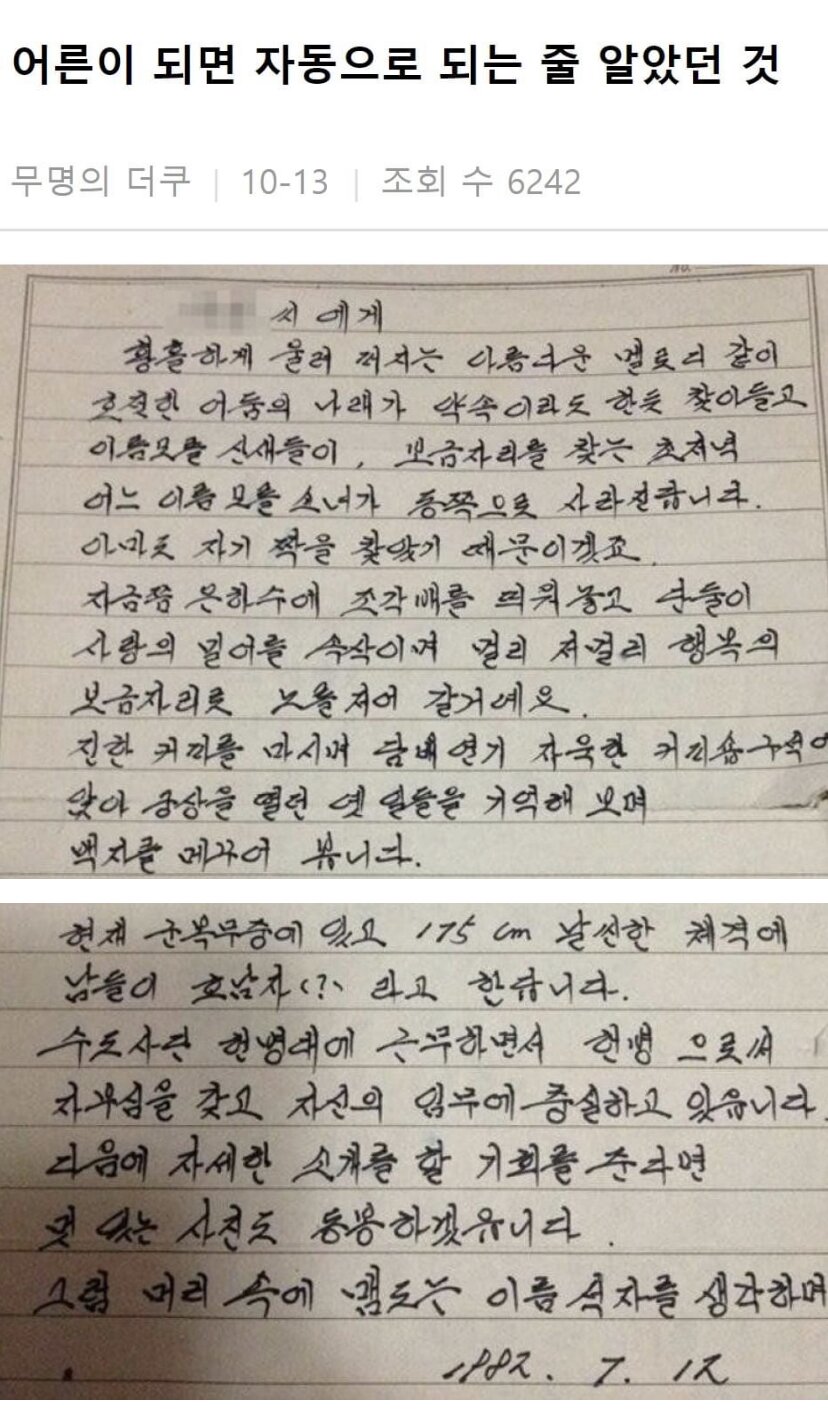 어른이 되면 자동으로 되는 줄 알았던 것
무명의 더쿠 | 10-13 | 조회 수 6242
씨에게
황홀하게 울려 퍼지는 아름다운 멜로디 같이
호젓한 어둠의 나래가 약속이라도 한듯 찾아들고
이름모를 산새들이, 보금자리를 찾는 초저녁
어느 이름모를 소녀가 동쪽으로 사라진답니다.
아마도 자기 짝을 찾았기 때문이겠죠.
지금쯤 은하수에 조각배를 띄워놓고 단둘이
사랑의 밀어를 속삭이며 멀리 저멀리 행복의
보금자리로 노를 저어 갈거예요.
진한 커피를 마시며 담배연기 자욱한 커피숍구석에
앉아 궁상을 떨던 옛 일들을 기억해 보며
백지를 메꾸어 봅니다.
현재 군복무중에 있고 175 cm 날씬한 체격에
남들이 호남자(?) 라고 한답니다.
수도사단 헌병대에 근무하면서 헌병 으로써
자부심을 갖고 자신의 임무에 충실하고 있읍니다.
다음에 자세한 소개를 할 기회를 준다면
멋 있는 사진도 동봉하겠읍니다.
그럼 머리 속에 맴도는 이름 석자를 생각하며
1982. 7. 12